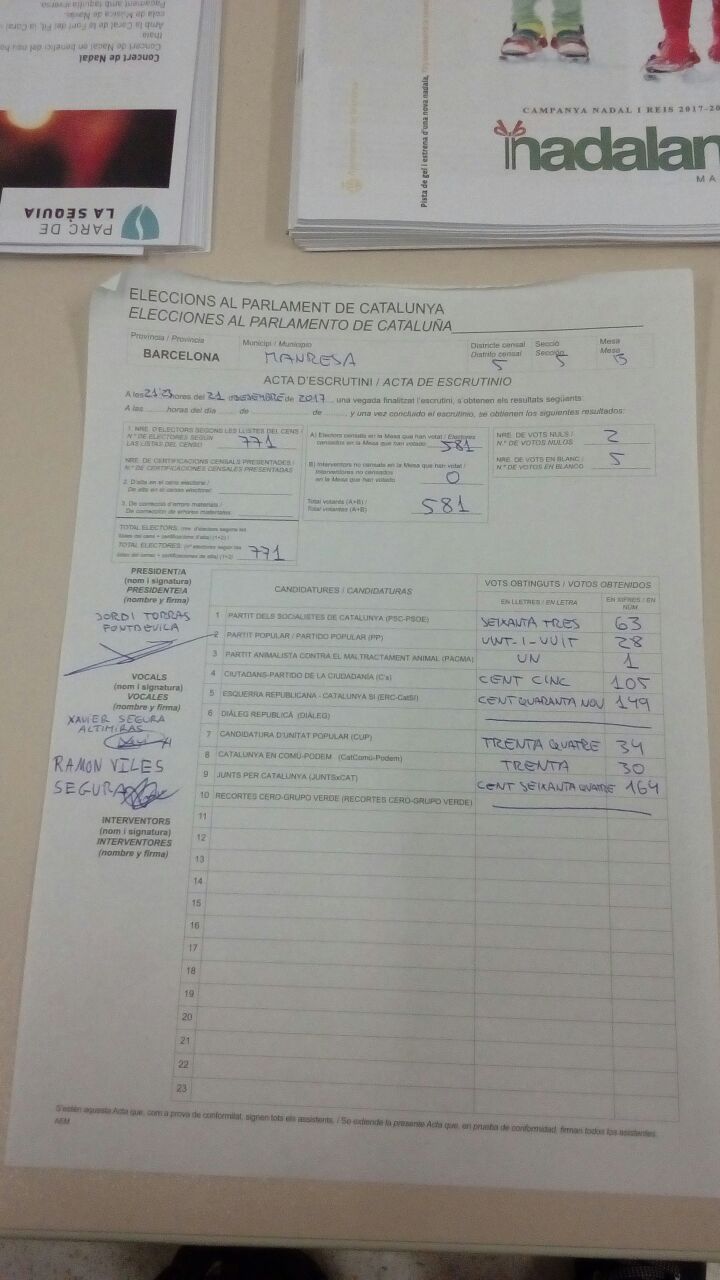 Concert de Nadal
Concert de Nadal en benefici del nou
Amb la Coral de la Font del Fit, la Coral
coda de Música de Navàs.
Pagament amb taquilla inversa.
PARC DE
LA SÈQUIA
Pista de gel i estrena d'una nova nadala,
CAMPANYA NADAL I REIS 2017-20
nadalan
MA
ELECCIONS AL PARLAMENT DE CATALUNYA
ELECCIONES AL PARLAMENTO DE CATALUÑA
Província / Provincia
BARCELONA
Municipi / Municipio
MANRESA
Districte censal
Distrito censal
5
Secció
Sección
5
Mesa
Mesa
B
ACTA D'ESCRUTINI / ACTA DE ESCRUTINIO
A les 21'23 hores del 21 DESEMBRE de 2017... una vegada finalitzat l'escrutini, s'obtenen els resultats següents:
A las ........ horas del día ...... de .................... de ........, y una vez concluido el escrutinio, se obtienen los siguientes resultados:
1. NRE. D'ELECTORS SEGONS LES LLISTES DEL CENS /
N.º DE ELECTORES SEGÚN
LAS LISTAS DEL CENSO
771
NRE. DE CERTIFICACIONS CENSALS PRESENTADES /
N.º DE CERTIFICACIONES CENSALES PRESENTADAS
2. D'alta en el cens electoral /
De alta en el censo electoral:
3. De correcció d'errors materials /
De corrección de errores materiales:
TOTAL ELECTORS: (nre. d'electors segons les
llistes del cens + certificacions d'alta) (1+2) /
TOTAL ELECTORES: (nº electores según las
listas del censo + certificaciones de alta) (1+2)
771
A) Electors censats en la Mesa que han votat / Electores
censados en la Mesa que han votado
581
B) Interventors no censats en la Mesa que han votat /
Interventores no censados
en la Mesa que han votado
0
Total votants (A+B) /
Total votantes (A+B)
581
NRE. DE VOTS NULS /
N.º DE VOTOS NULOS
2
NRE. DE VOTS EN BLANC /
N.º DE VOTOS EN BLANCO
5
PRESIDENT/A
(nom i signatura)
PRESIDENTE/A
(nombre y firma)
JORDI TORRAS
FONTDEVILA
VOCALS
(nom i signatura)
VOCALES
(nombre y firma)
XAVIER SEGURA
ALTIMIRAS
RAMON VILES
SEGURA
INTERVENTORS
(nom i signatura)
INTERVENTORES
(nombre y firma)
CANDIDATURES / CANDIDATURAS
VOTS OBTINGUTS / VOTOS OBTENIDOS
EN LLETRES / EN LETRA
EN XIFRES / EN NÚM.
1 PARTIT DELS SOCIALISTES DE CATALUNYA (PSC-PSOE) SEIXANTA TRES 63
2 PARTIT POPULAR / PARTIDO POPULAR (PP) VINT-I-VUIT 28
3 PARTIT ANIMALISTA CONTRA EL MALTRACTAMENT ANIMAL (PACMA) UN 1
4 CIUTADANS-PARTIDO DE LA CIUDADANÍA (C's) CENT CINC 105
5 ESQUERRA REPUBLICANA - CATALUNYA SÍ (ERC-CatSí) CENT QUARANTA NOU 149
6 DIÀLEG REPUBLICÀ (DIÀLEG)
7 CANDIDATURA D'UNITAT POPULAR (CUP) TRENTA QUATRE 34
8 CATALUNYA EN COMÚ-PODEM (CatComú-Podem) TRENTA 30
9 JUNTS PER CATALUNYA (JUNTSxCAT) CENT SEIXANTA QUATRE 164
10 RECORTES CERO-GRUPO VERDE (RECORTES CERO-GRUPO VERDE)
11
12
13
14
15
16
17
18
19
20
21
22
23
S'estén aquesta Acta que, com a prova de conformitat, signen tots els assistents. / Se extiende la presente Acta que, en prueba de conformidad, firman todos los asistentes.
AEM